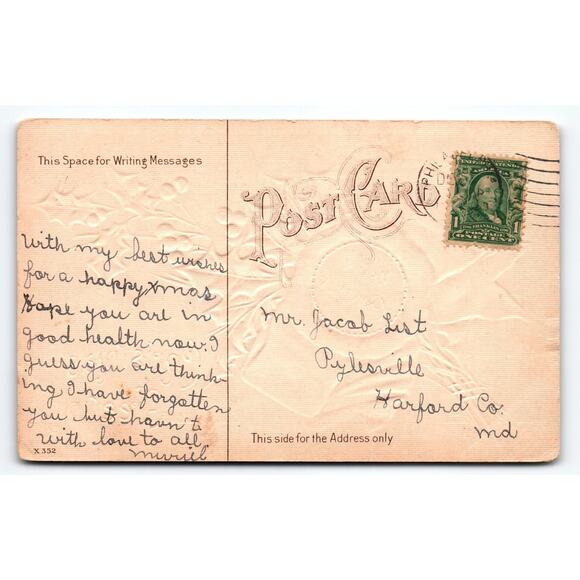 This Space for Writing Messages
POST CARD
PHILA
UNITED STATES
1
ONE CENT
With my best wishes
for a happy xmas
Hope you are in
good health now. I
guess you are think-
ing I have forgotten
you but havn't
with love to all,
Muriel
X 352
Mr. Jacob List
Pylesville
Harford Co.
Md
This side for the Address only